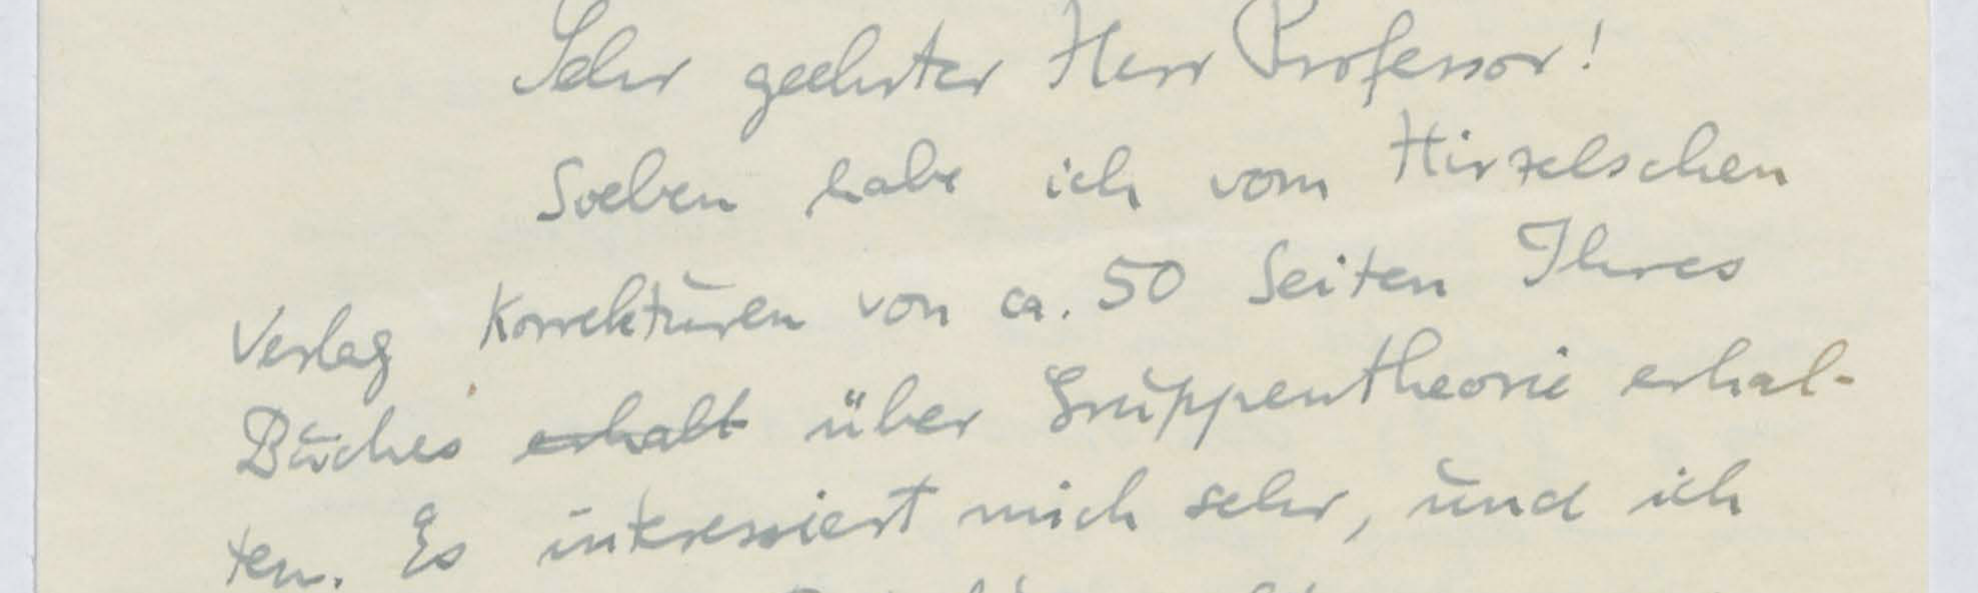 Sehr geehrter Herr Professor!
Soeben habe ich vom Hirzelschen
Verlag Korrekturen von ca. 50 Seiten Ihres
Buches erhalt über Gruppentheorie erhal-
ten. Es interessiert mich sehr, und ich